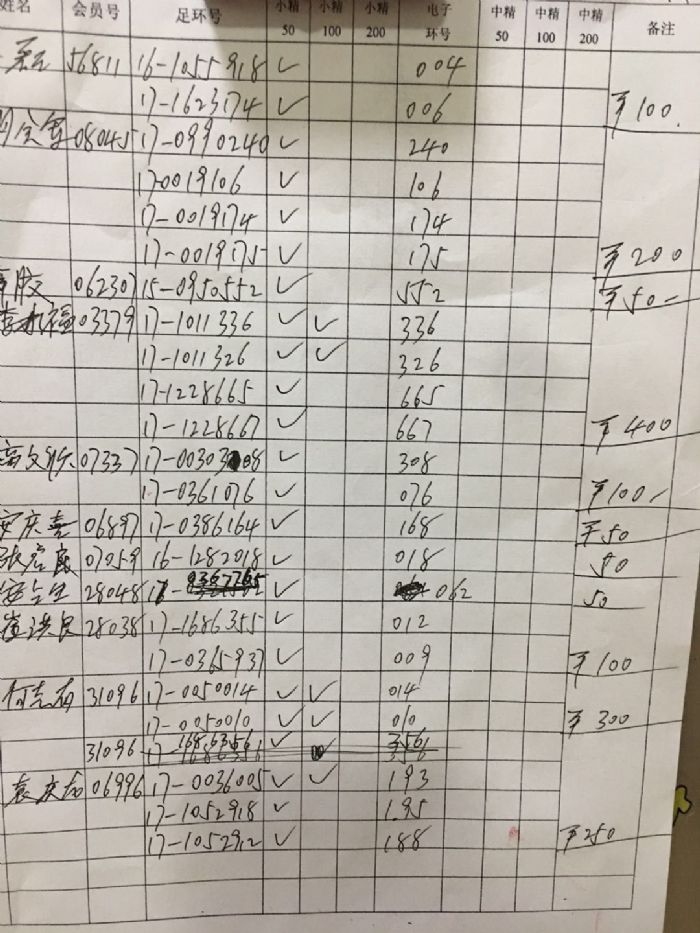 姓名 会员号 足环号 小精 50 小精 100 小精 200 电子环号 中精 50 中精 100 中精 200 备注
56811 16-1055918 ✓ 004
17-1623174 ✓ 006 ¥100
080445 17-0990240 ✓ 240
17-0019106 ✓ 106
17-0019174 ✓ 174
17-0019175 ✓ 175 ¥200
062307 15-0950552 ✓ 552 ¥50-
03379 17-1011336 ✓ ✓ 336
17-1011326 ✓ ✓ 326
17-1228665 ✓ 665
17-1228667 ✓ 667 ¥400
07337 17-0030308 ✓ 308
17-0361076 ✓ 076 ¥100-
安庆喜 06897 17-0386164 ✓ 168 ¥50
07059 16-1282018 ✓ 018 50
28048 17- ✓ 062 50
崔洪良 28038 17-1686355 ✓ 012
17-0365937 ✓ 009 ¥100
31096 17-0050014 ✓ ✓ 014
17-0050010 ✓ ✓ 010 ¥300
31096 17-1686356 ✓ 356
06996 17-0036005 ✓ ✓ 193
17-1052918 ✓ 195
17-1052912 ✓ 188 ¥250